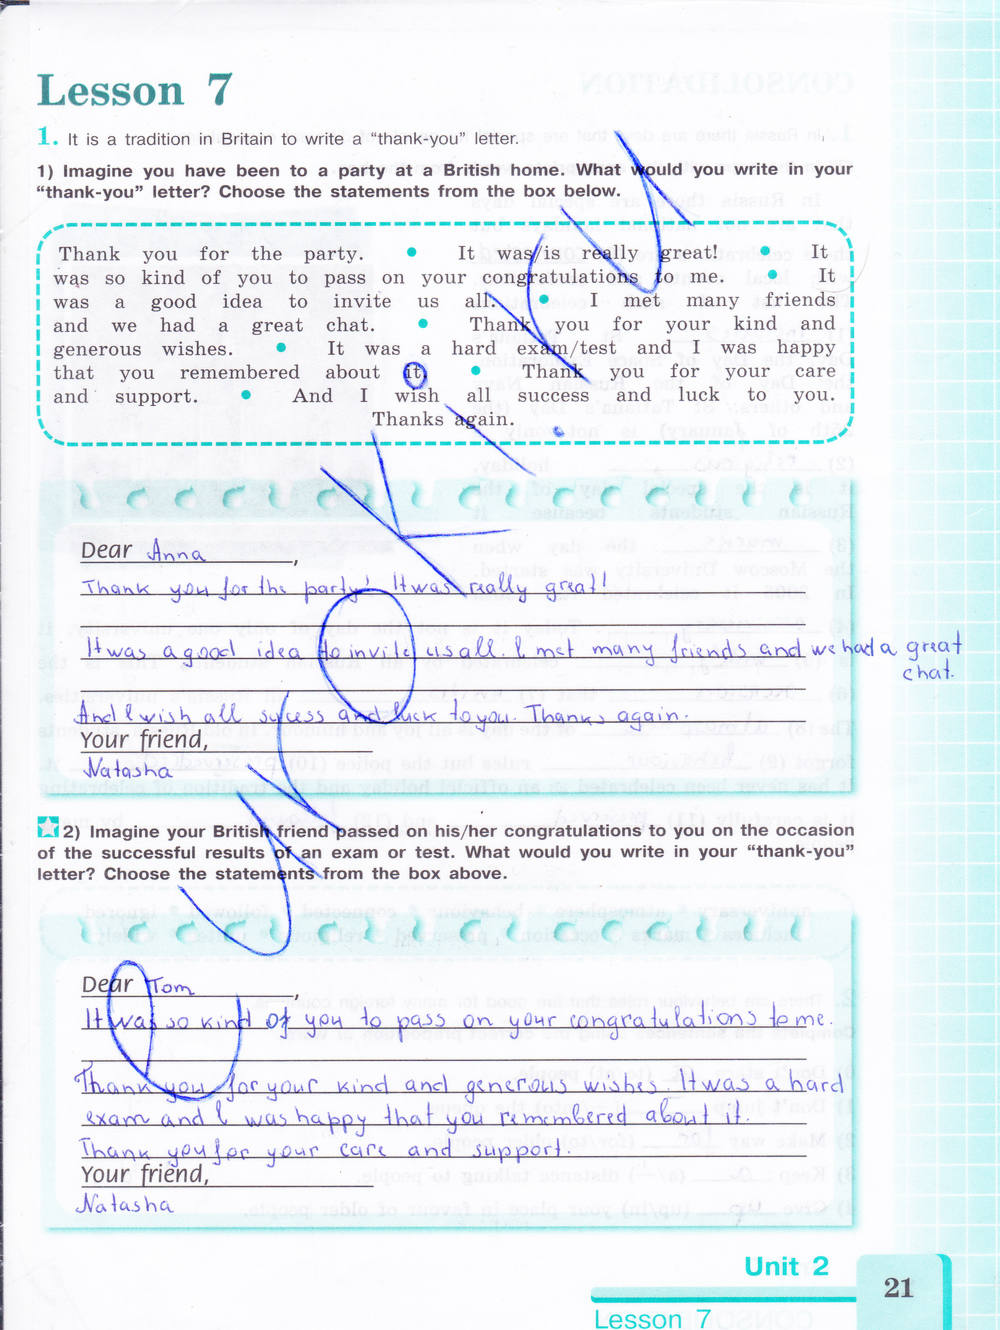 Lesson 7
1. It is a tradition in Britain to write a “thank-you” letter.
1) Imagine you have been to a party at a British home. What would you write in your
“thank-you” letter? Choose the statements from the box below.
Thank you for the party. • It was/is really great! • It
was so kind of you to pass on your congratulations to me. • It
was a good idea to invite us all. • I met many friends
and we had a great chat. • Thank you for your kind and
generous wishes. • It was a hard exam/test and I was happy
that you remembered about it. • Thank you for your care
and support. • And I wish all success and luck to you. •
Thanks again.
Dear Anna,
Thank you for the party! It was really great!
It was a good idea to invite us all. I met many friends and we had a great
chat.
And I wish all sucess and luck to you. Thanks again.
Your friend,
Natasha
2) Imagine your British friend passed on his/her congratulations to you on the occasion
of the successful results of an exam or test. What would you write in your “thank-you”
letter? Choose the statements from the box above.
Dear Tom,
It was so kind of you to pass on your congratulations to me.
Thank you for your kind and generous wishes. It was a hard
exam and I was happy that you remembered about it.
Thank you for your care and support.
Your friend,
Natasha
Unit 2
21
Lesson 7